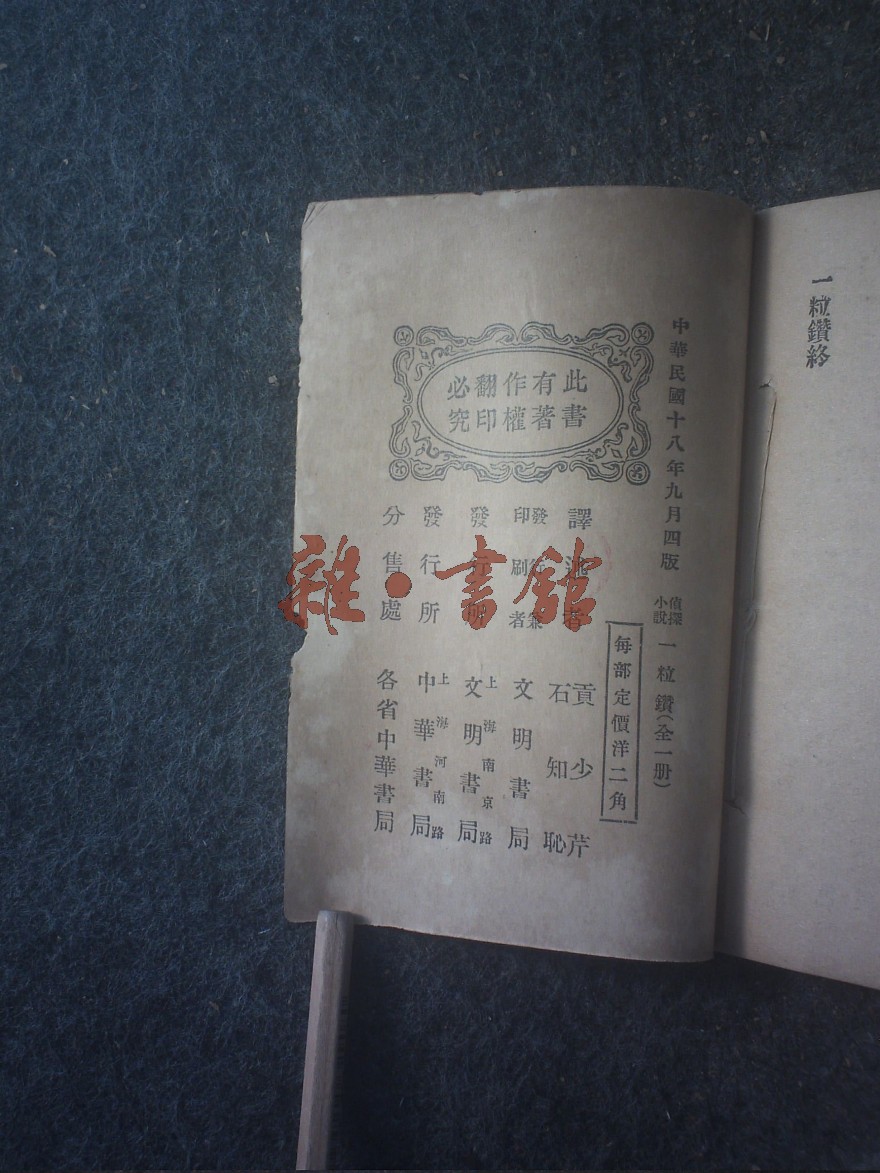 一粒鑽終
中華民國十八年九月四版
偵探小說 一粒鑽（全一册）
每部定價洋二角
此書有著作權翻印必究
譯述者 貢少芹 石知恥
發行兼印刷者 文明書局
發行所 上海南京路 文明書局
發行所 上海河南路 中華書局
分售處 各省中華書局
雜·書館